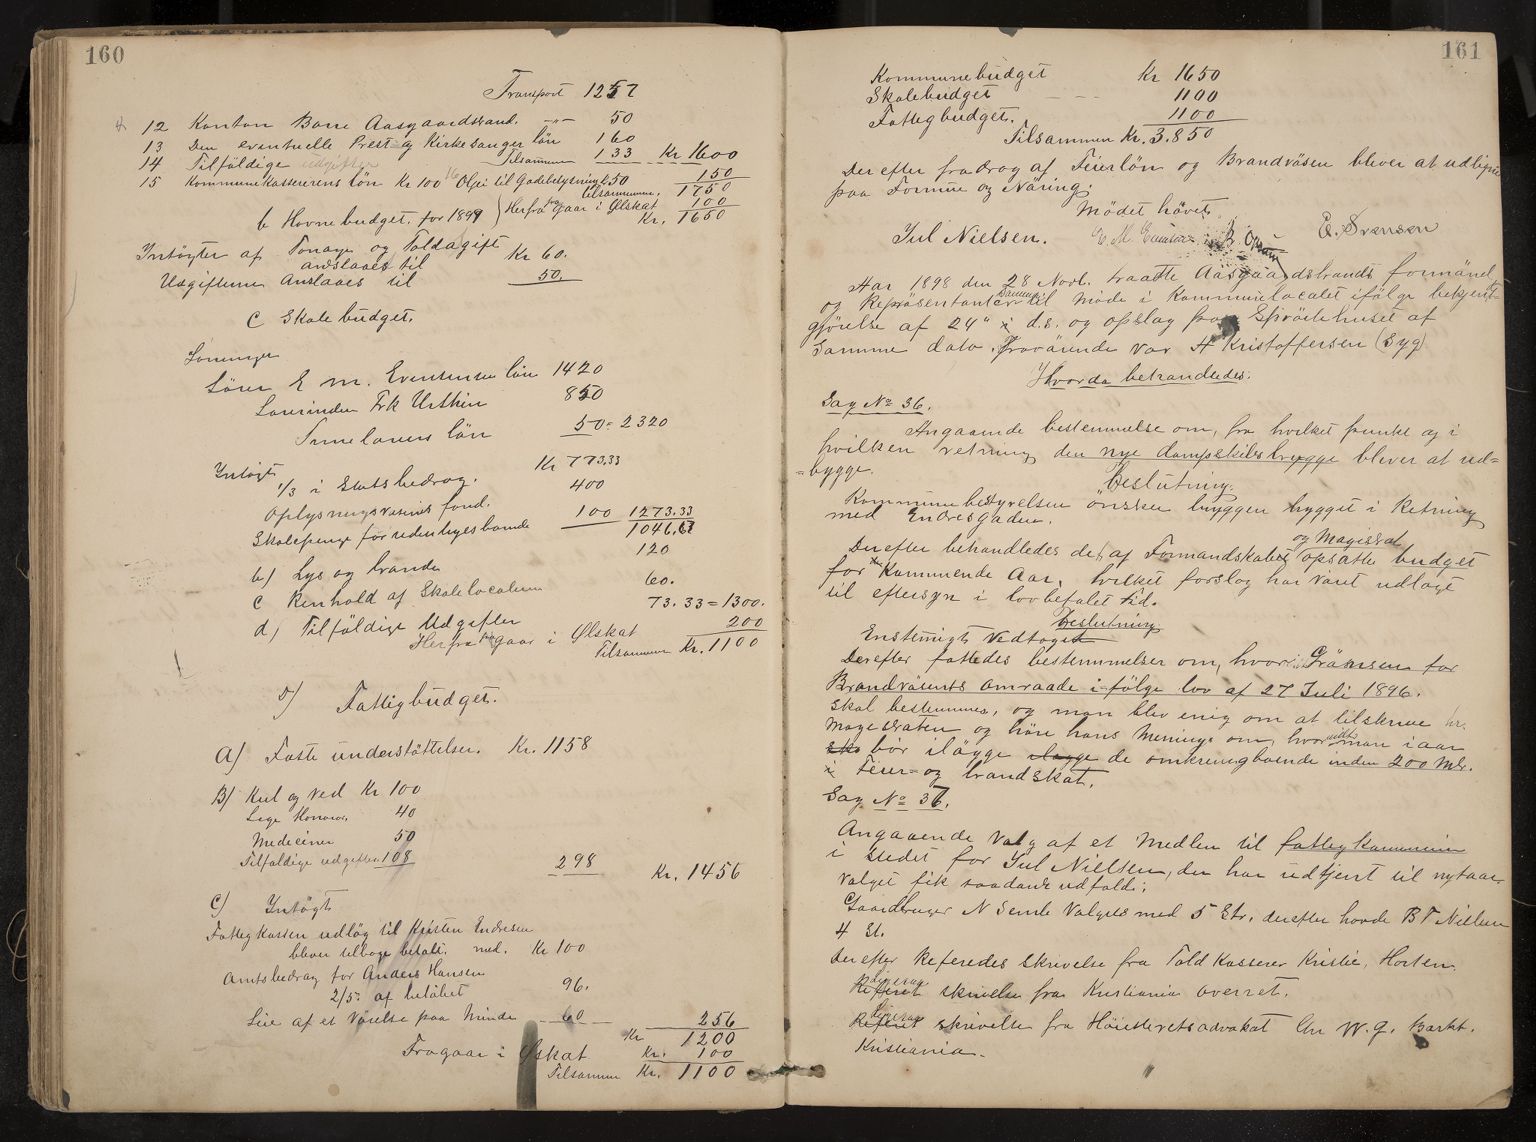 160
Transport 1257
12 Kontor Borre Aasgaardstrand. —"— 50
13 Den eventuelle Prest og Kirkesanger løn 160
14 Tilfäldige udgifter Tilsammen 133 Kr 1600
15 Kommunekassererens løn Kr 100 16 Olje til Gadebelysning 50 150
tilsammen. 1750
Herfra fragaar i Ølskat 100
b Havnebudget. for 1899 Kr. 1650
Intögter af Tonage og Toldagift
anslaaes til Kr 60.
Udgifterne Anslaaes til 50.
C Skolebudget.
Lønninger
Lärer E M. Evensens løn 1420
Lärerinden Frk Urthin 850
Timelärers løn 50 = 2320
Intögt
1/3 i Statsbedrag. Kr 773.33
Oplysningsväsenets fond. 400
Skolepenge for udenbyesboende 100 1273.33
1046.67
b) Lys og brande 120
C Renhold af Skolelocalerne 60.
d) Tilfäldige Udgifter 73.33 = 1300.
Herfra fragaar i Ølskat 200
Tilsammen Kr. 1100
D) Fattigbudget.
A) Faste understöttelser. Kr. 1158
B) Kul og ved Kr 100
Læge Honorar 40
Mediciner 50
Tilfäldige udgifter 108 298 Kr. 1456
C) Intögt
Fattigkassen udlæg til Kristen Endresen
bliver tilbage betalt. med. Kr 100
Amtsbedrag for Anders Hansen
2/5 af beløbet 96.
Leie af et Värelse paa Minde 60 256
Kr 1200
Fragaar i Ølskat Kr. 100
Tilsammen Kr. 1100
161
Kommunebudget Kr 1650
Skolebudget — — 1100
Fattigbudget. 1100
Tilsammen Kr. 3.850
Derefter fradrag af Feierløn og Brandväsen bliver at udligne
paa Formue og Näring.
Mödet hävet.
Jul Nielsen. E. M. Evensen E. Svensen
Aar 1898 den 28 Novbr. traatte Aasgaardstrands formänd
og Repräsentanter sammen til Möde i Kommunelocalet ifølge bekjent-
gjörelse af 24" i d.s. og opslag paa Spröitehuset af
samme dato. Fraværende var H Kristoffersen (Syg)
Hvorda behandledes:
Sag No 36.
Angaaende bestemmelse om, fra hvilket punkt og i
hvilken retning den nye dampskibsbrygge bliver at ud=
=bygge.
Beslutning.
Kommunebestyrelsen önsker bryggen bygget i Retning
med Endresgaden.
Derefter behandledes det af Formandskabet og Magistrat opsatte budget
for det Kommende Aar, hvilket forslag har varet udlagt
til eftersyn i lovbefalet tid.
Beslutning
Enstemigt Vedtaget
Derefter fattedes bestemmelser om, hvor Gränsen for
Brandväsents omraade ifølge lov af 27 Juli 1896.
skal bestemmes, og man blev enig om at tilskrive hr.
Magistraten og höre hans Mening om, hvorvidt man i aar
sko bör ilägge ilagge de omkringboende inden 200 Mtr.
i Feier- og brandskat.
Sag No 37.
Angaaende Valg af et Medlem til fattigkommission
i stedet for Jul Nielsen, der har udtjent til nytaar.
Valget fik saadant udfald:
Gaardbruger N Semb Valgtes med 5 St., derefter havde B T Nielsen
4 St.
Derefter Referedes skrivelse fra Toldkasserer Kristie, Horten.
Ligesaa Referet skrivelse fra Kristiania overret.
Ligesaa Referet skrivelse fra Höiesteretsadvokat Chr W. G. Barkt.
Kristiania.